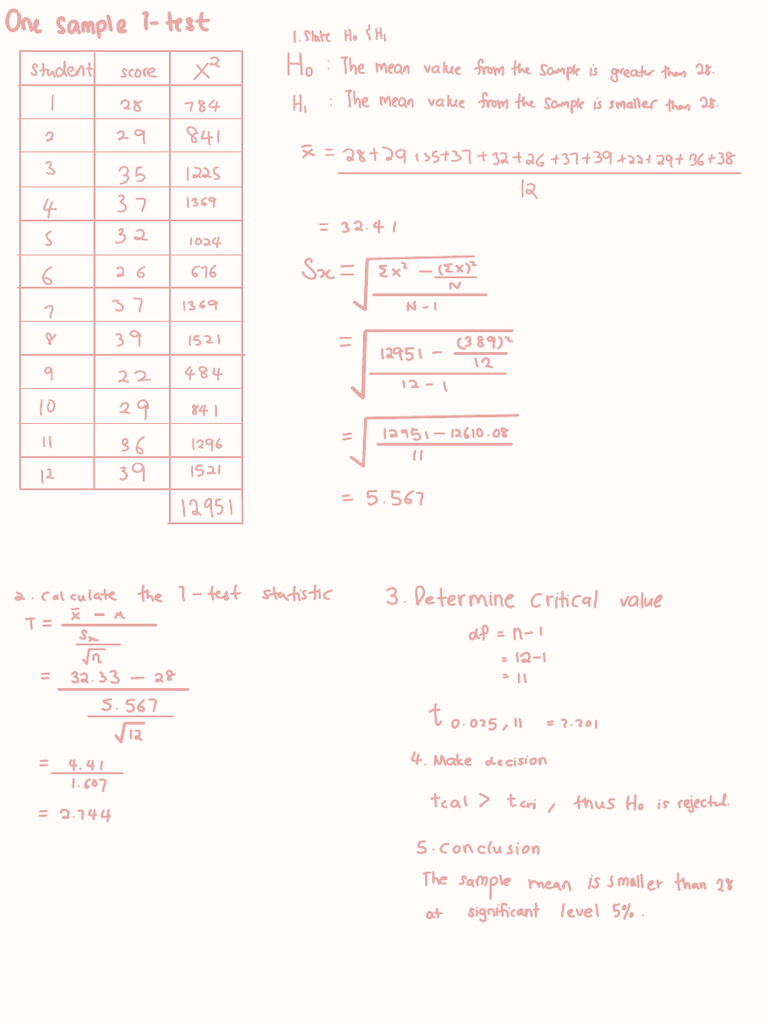 One sample T-test
student score X²
1 28 784
2 29 841
3 35 1225
4 37 1369
5 32 1024
6 26 676
7 37 1369
8 39 1521
9 22 484
10 29 841
11 36 1296
12 39 1521
12951
1. State H₀ & H₁
H₀ : The mean value from the sample is greater than 28.
H₁ : The mean value from the sample is smaller than 28.
x̄ = (28+29+35+37+32+26+37+39+22+29+36+38) / 12
= 32.41
Sx = √((Σx² − (Σx)²/N) / (N−1))
= √((12951 − (389)²/12) / (12−1))
= √((12951 − 12610.08) / 11)
= 5.567
2. Calculate the T-test statistic
T = (x̄ − μ) / (Sx/√n)
= (32.33 − 28) / (5.567/√12)
= 4.41 / 1.607
= 2.744
3. Determine critical value
df = n−1
= 12−1
= 11
t 0.025, 11 = 2.201
4. Make decision
tcal > tcri, thus H₀ is rejected.
5. conclusion
The sample mean is smaller than 28
at significant level 5%.